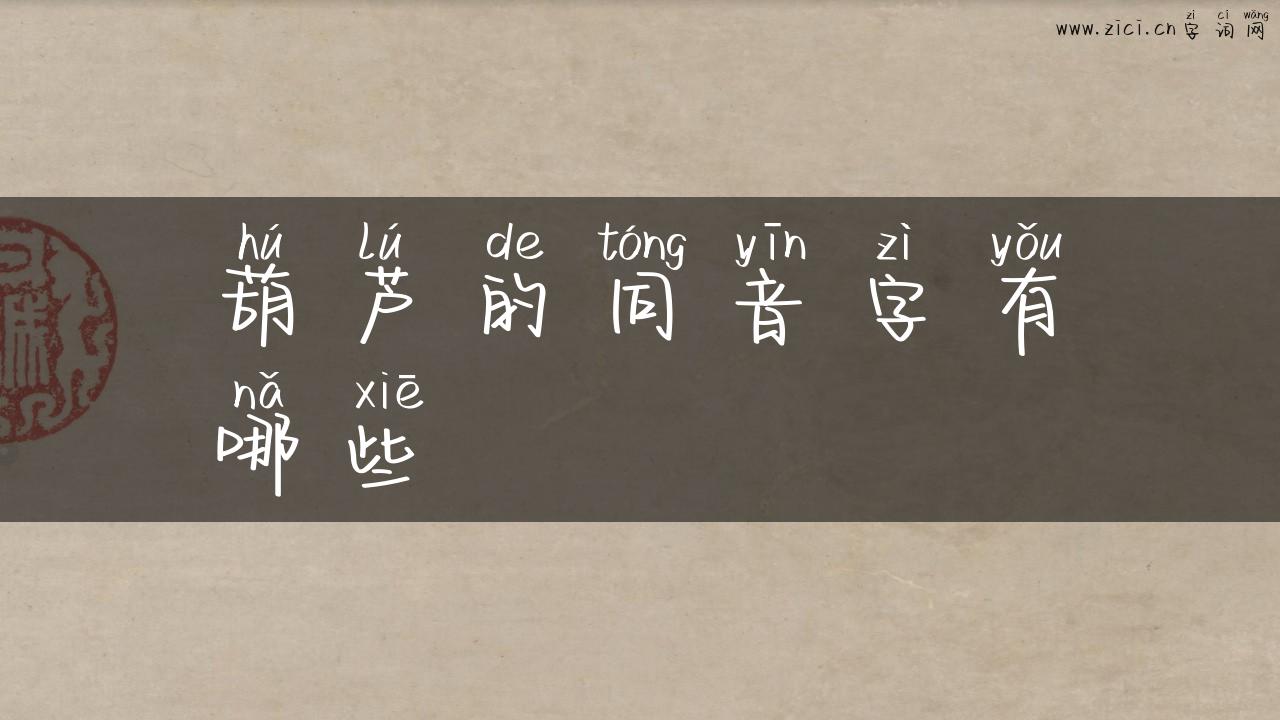 zì cí wǎng
www.zici.cn字词网
hú lú de tóng yīn zì yǒu
葫芦的同音字有
nǎ xiē
哪些